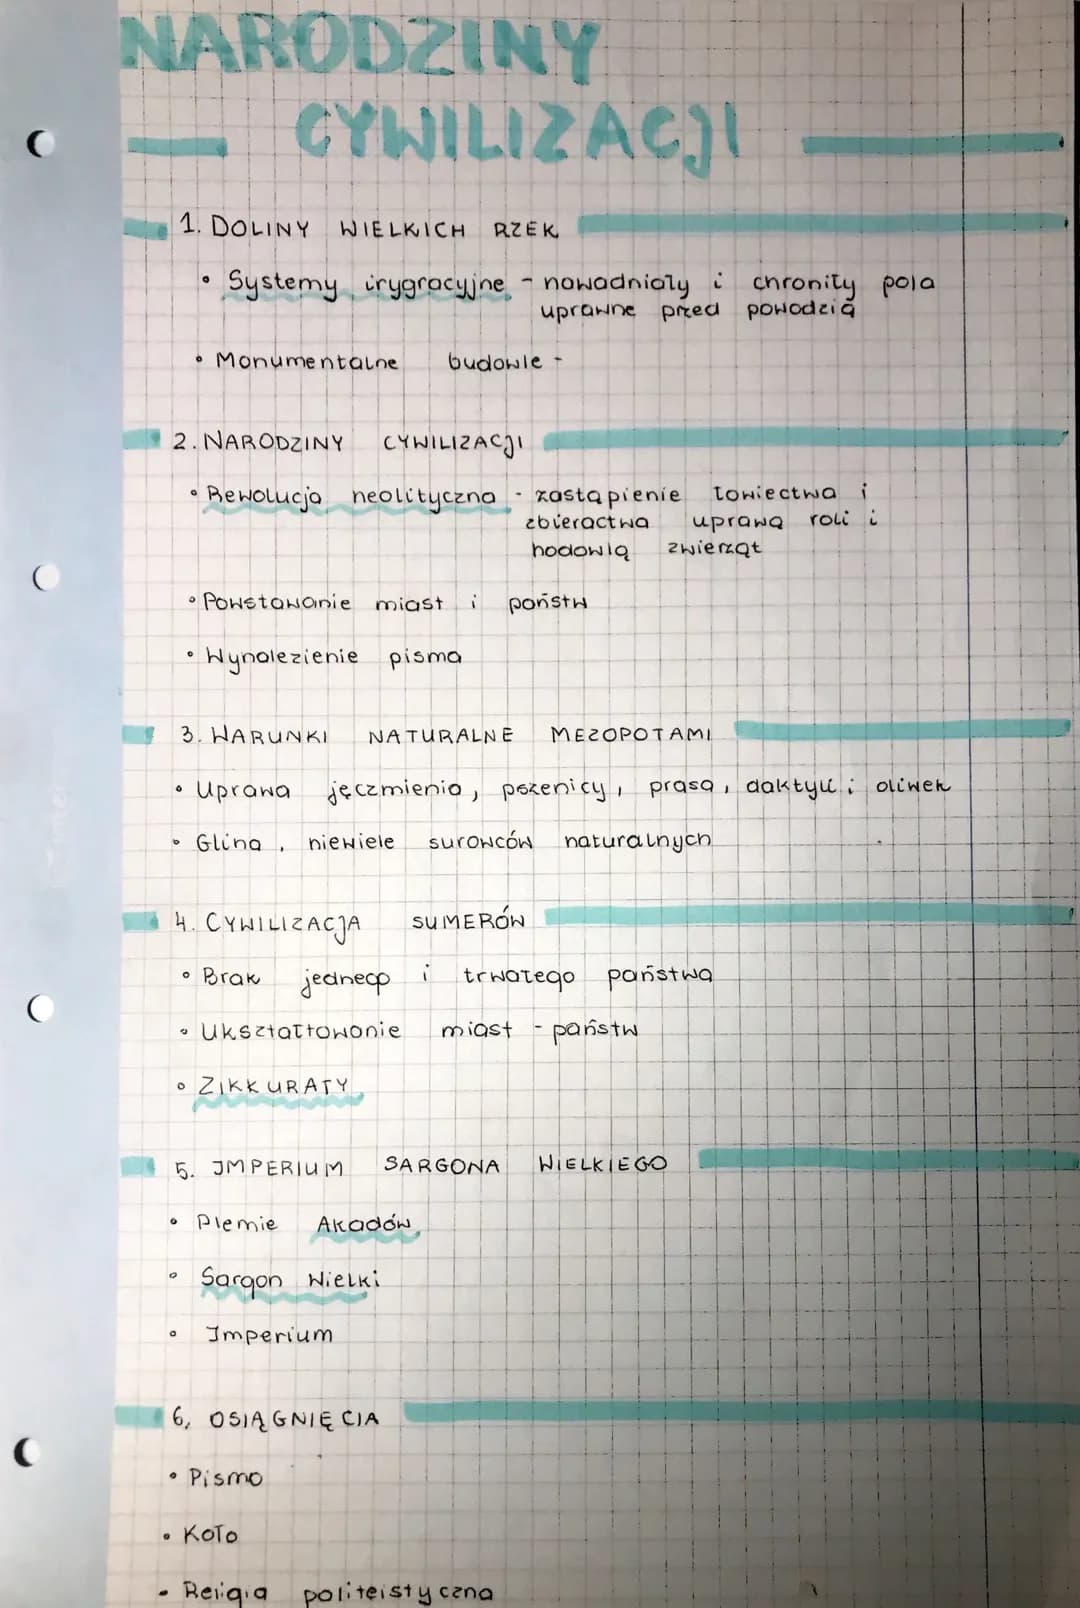 NARODZINY
CYWILIZACJI
1. DOLINY WIELKICH RZEK
• Systemy irygracyjne - nawadniały i chroniły pola
uprawne przed powodzią
• Monumentalne budowle -
2. NARODZINY CYWILIZACJI
• Rewolucja neolityczna - zastąpienie łowiectwa i
zbieractwa uprawą roli i
hodowlą zwierząt
• Powstawanie miast i państw
• Wynalezienie pisma
3. WARUNKI NATURALNE MEZOPOTAMI
• Uprawa jęczmienia, pszenicy, prasa, daktyli i oliwek
• Glina, niewiele surowców naturalnych
4. CYWILIZACJA SUMERÓW
• Brak jednego i trwałego państwa
• Ukształtowanie miast - państw
• ZIKKURATY
5. IMPERIUM SARGONA WIELKIEGO
• Plemie Akadów
• Sargon Wielki
• Imperium
6. OSIĄGNIĘCIA
• Pismo
• Koło
• Religia politeistyczna